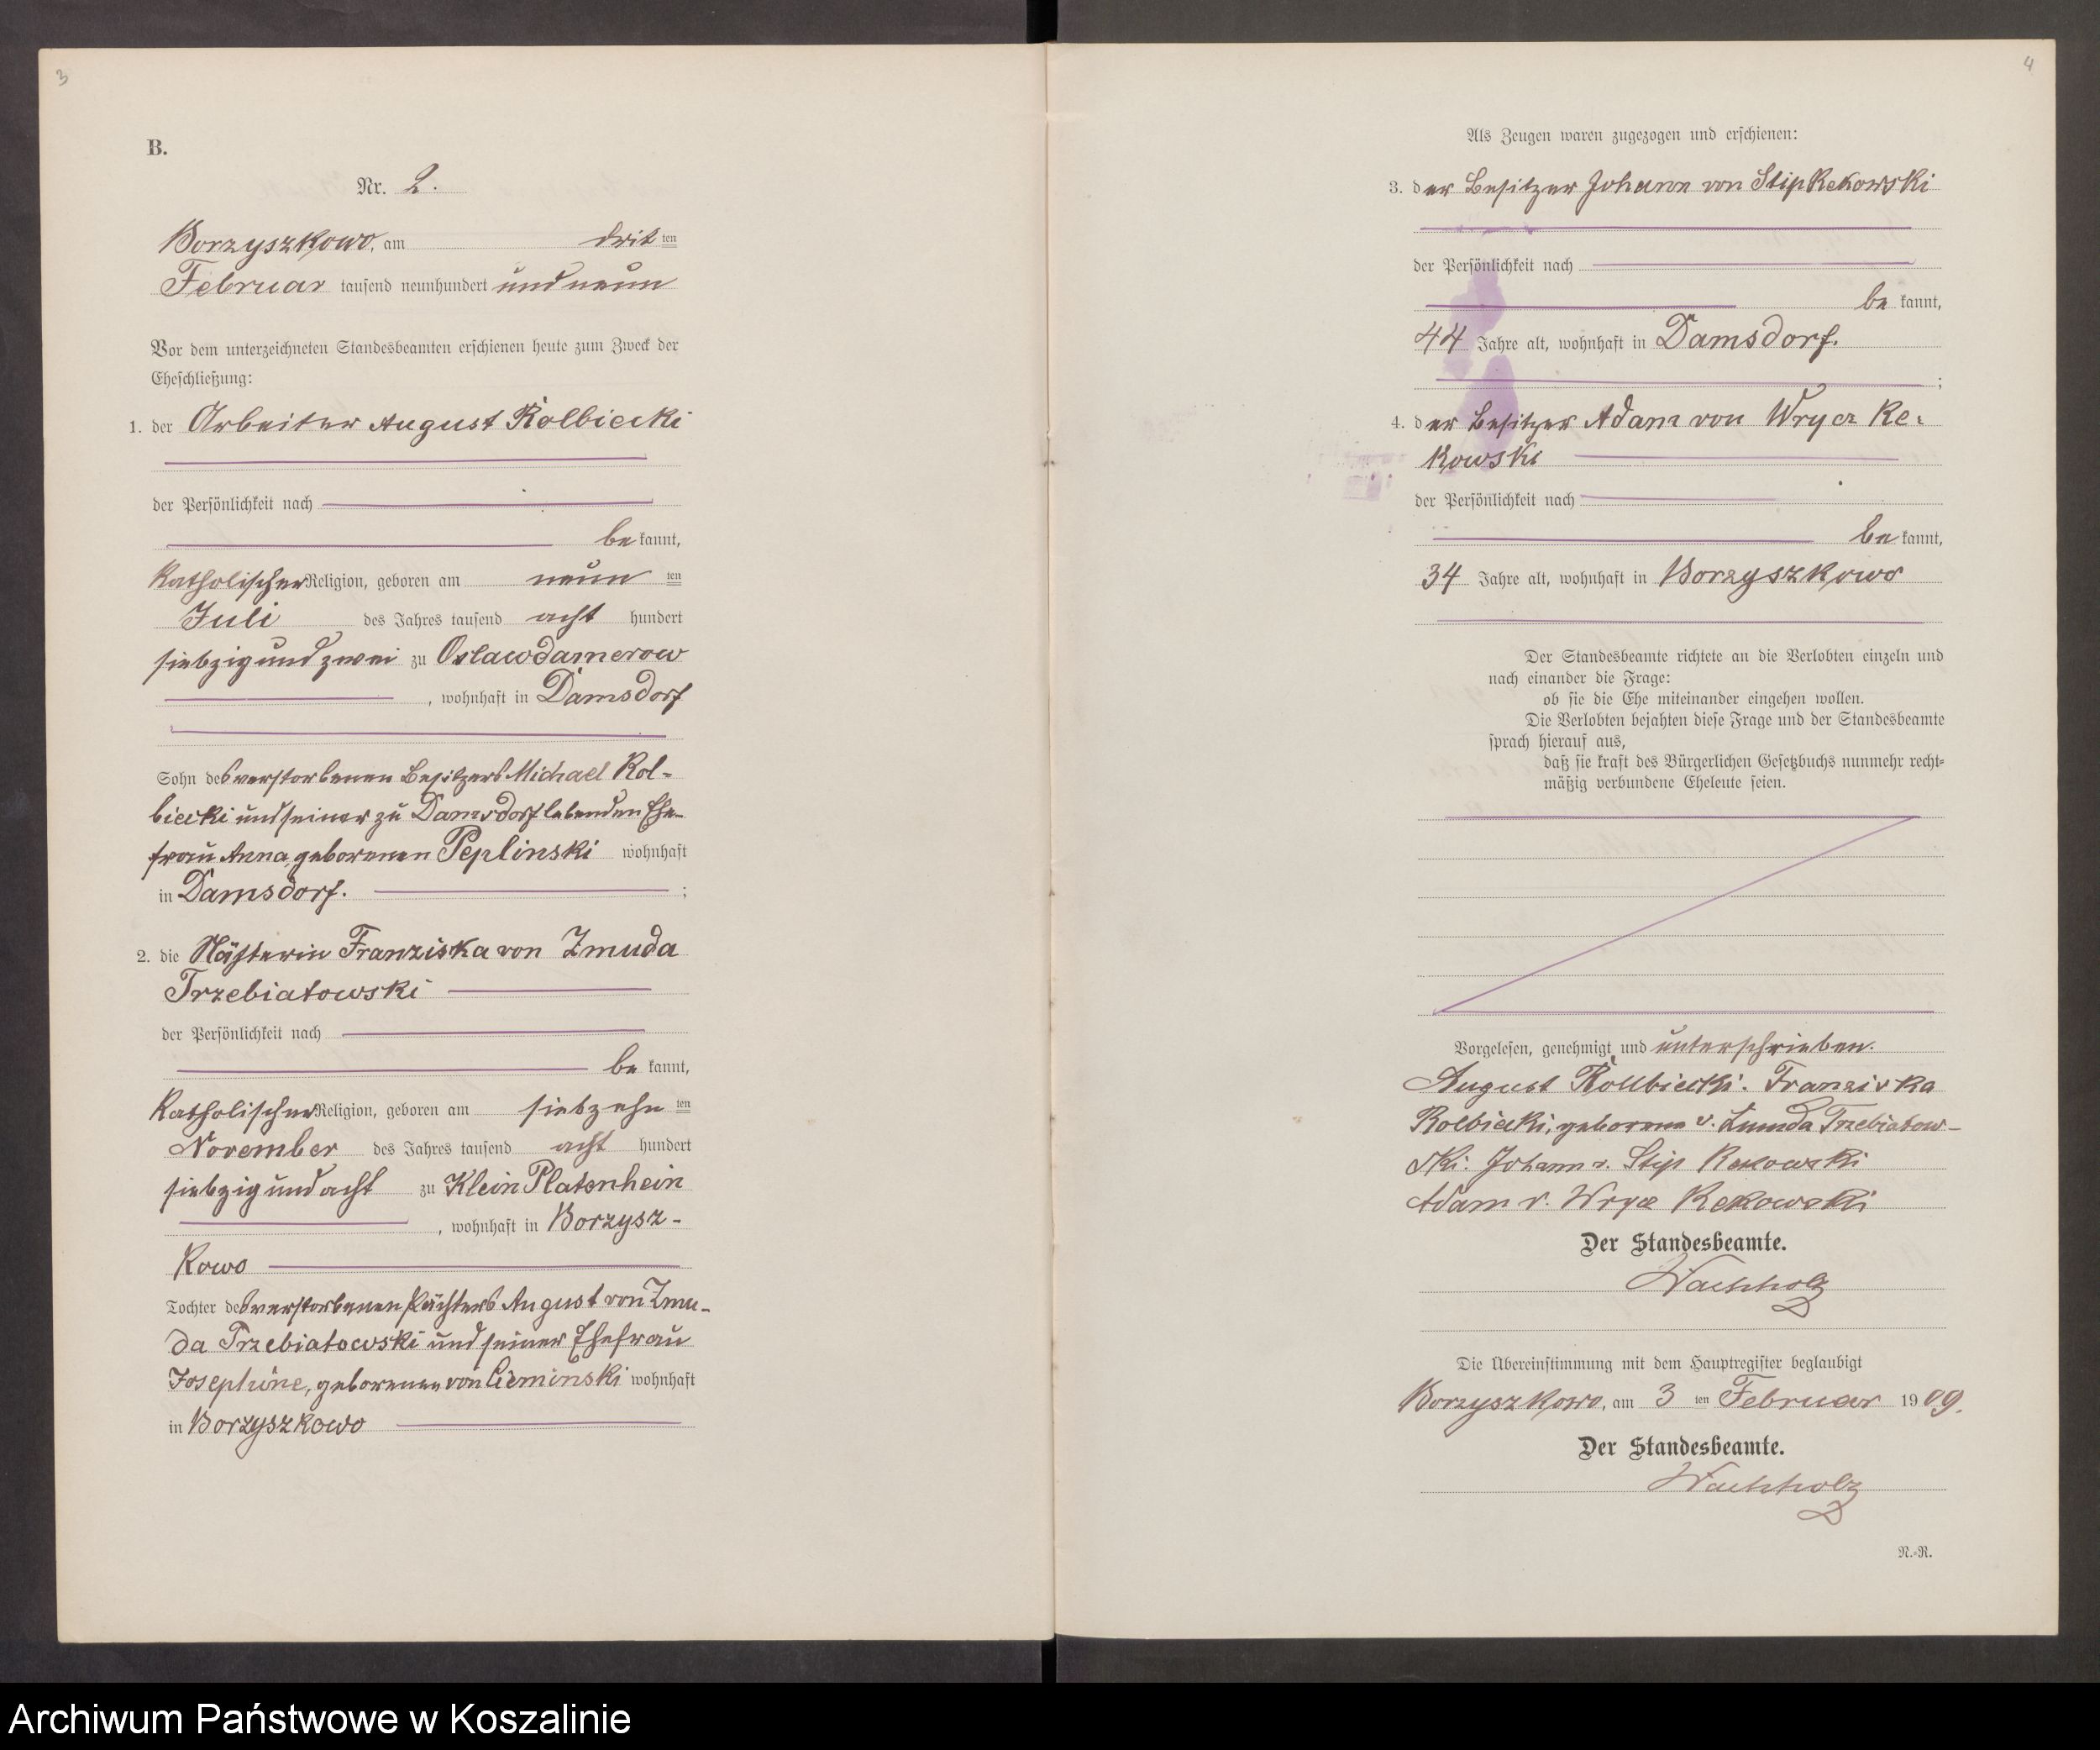 3
B.
Nr. 2.
Borzyszkowo, am dritten
Februar tausend neunhundert und neun
Vor dem unterzeichneten Standesbeamten erschienen heute zum Zweck der
Eheschließung:
1. der Arbeiter August Kolbiecki
der Persönlichkeit nach
be kannt,
katholischer Religion, geboren am neunten
Juli des Jahres tausend acht hundert
siebzig und zwei zu Oslawdamerow
, wohnhaft in Damsdorf
Sohn des verstorbenen Besitzers Michael Kol-
biecki und seiner zu Damsdorf lebenden Ehe-
frau Anna, geborenen Peplinski wohnhaft
in Damsdorf. ;
2. die Franziska von Zmuda
Trzebiatowski
der Persönlichkeit nach
be kannt,
katholischer Religion, geboren am siebzehnten
November des Jahres tausend acht hundert
siebzig und acht zu Klein Platenhein
, wohnhaft in Borzysz-
kowo
Tochter des verstorbenen Pächters August von Zmu-
da Trzebiatowski und seiner Ehefrau
Josephine, geborenen von Cieminski wohnhaft
in Borzyszkowo
4
Als Zeugen waren zugezogen und erschienen:
3. der Besitzer Johann von Stip Rekowski
der Persönlichkeit nach
be kannt,
44 Jahre alt, wohnhaft in Damsdorf.
;
4. der Besitzer Adam von Wrycz Re-
kowski
der Persönlichkeit nach
be kannt,
34 Jahre alt, wohnhaft in Borzyszkowo
Der Standesbeamte richtete an die Verlobten einzeln und
nach einander die Frage:
ob sie die Ehe miteinander eingehen wollen.
Die Verlobten bejahten diese Frage und der Standesbeamte
sprach hierauf aus,
daß sie kraft des Bürgerlichen Gesetzbuchs nunmehr recht-
mäßig verbundene Eheleute seien.
Vorgelesen, genehmigt und unterschrieben.
August Kolbiecki. Franziska
Kolbiecki, geborene v. Zmuda Trzebiatow-
ski. Johann v. Stip Rekowski
Adam v. Wrycz Rekowski
Der Standesbeamte.
Wachholz
Die Übereinstimmung mit dem Hauptregister beglaubigt
Borzyszkowo, am 3 ten Februar 1909.
Der Standesbeamte.
Wachholz
N.-R.
Archiwum Państwowe w Koszalinie